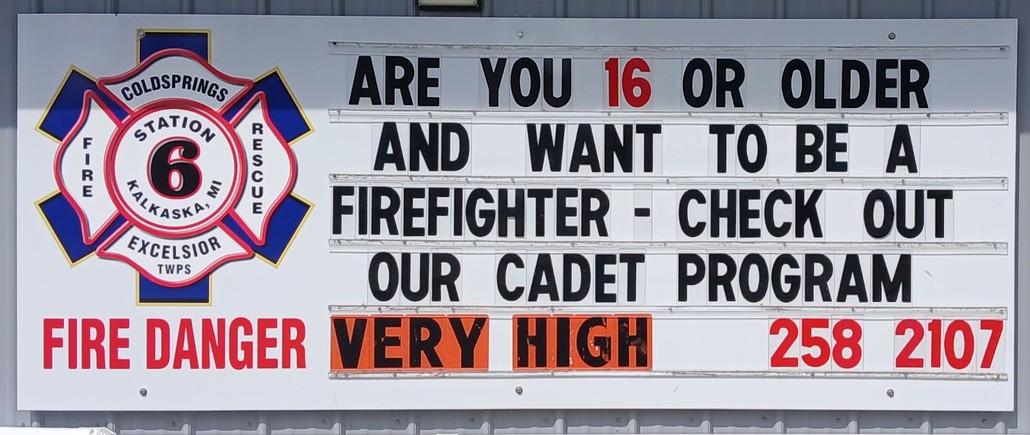 COLDSPRINGS
FIRE
STATION
6
KALKASKA, MI
RESCUE
EXCELSIOR
TWPS
ARE YOU 16 OR OLDER
AND WANT TO BE A
FIREFIGHTER - CHECK OUT
OUR CADET PROGRAM
FIRE DANGER VERY HIGH 258 2107